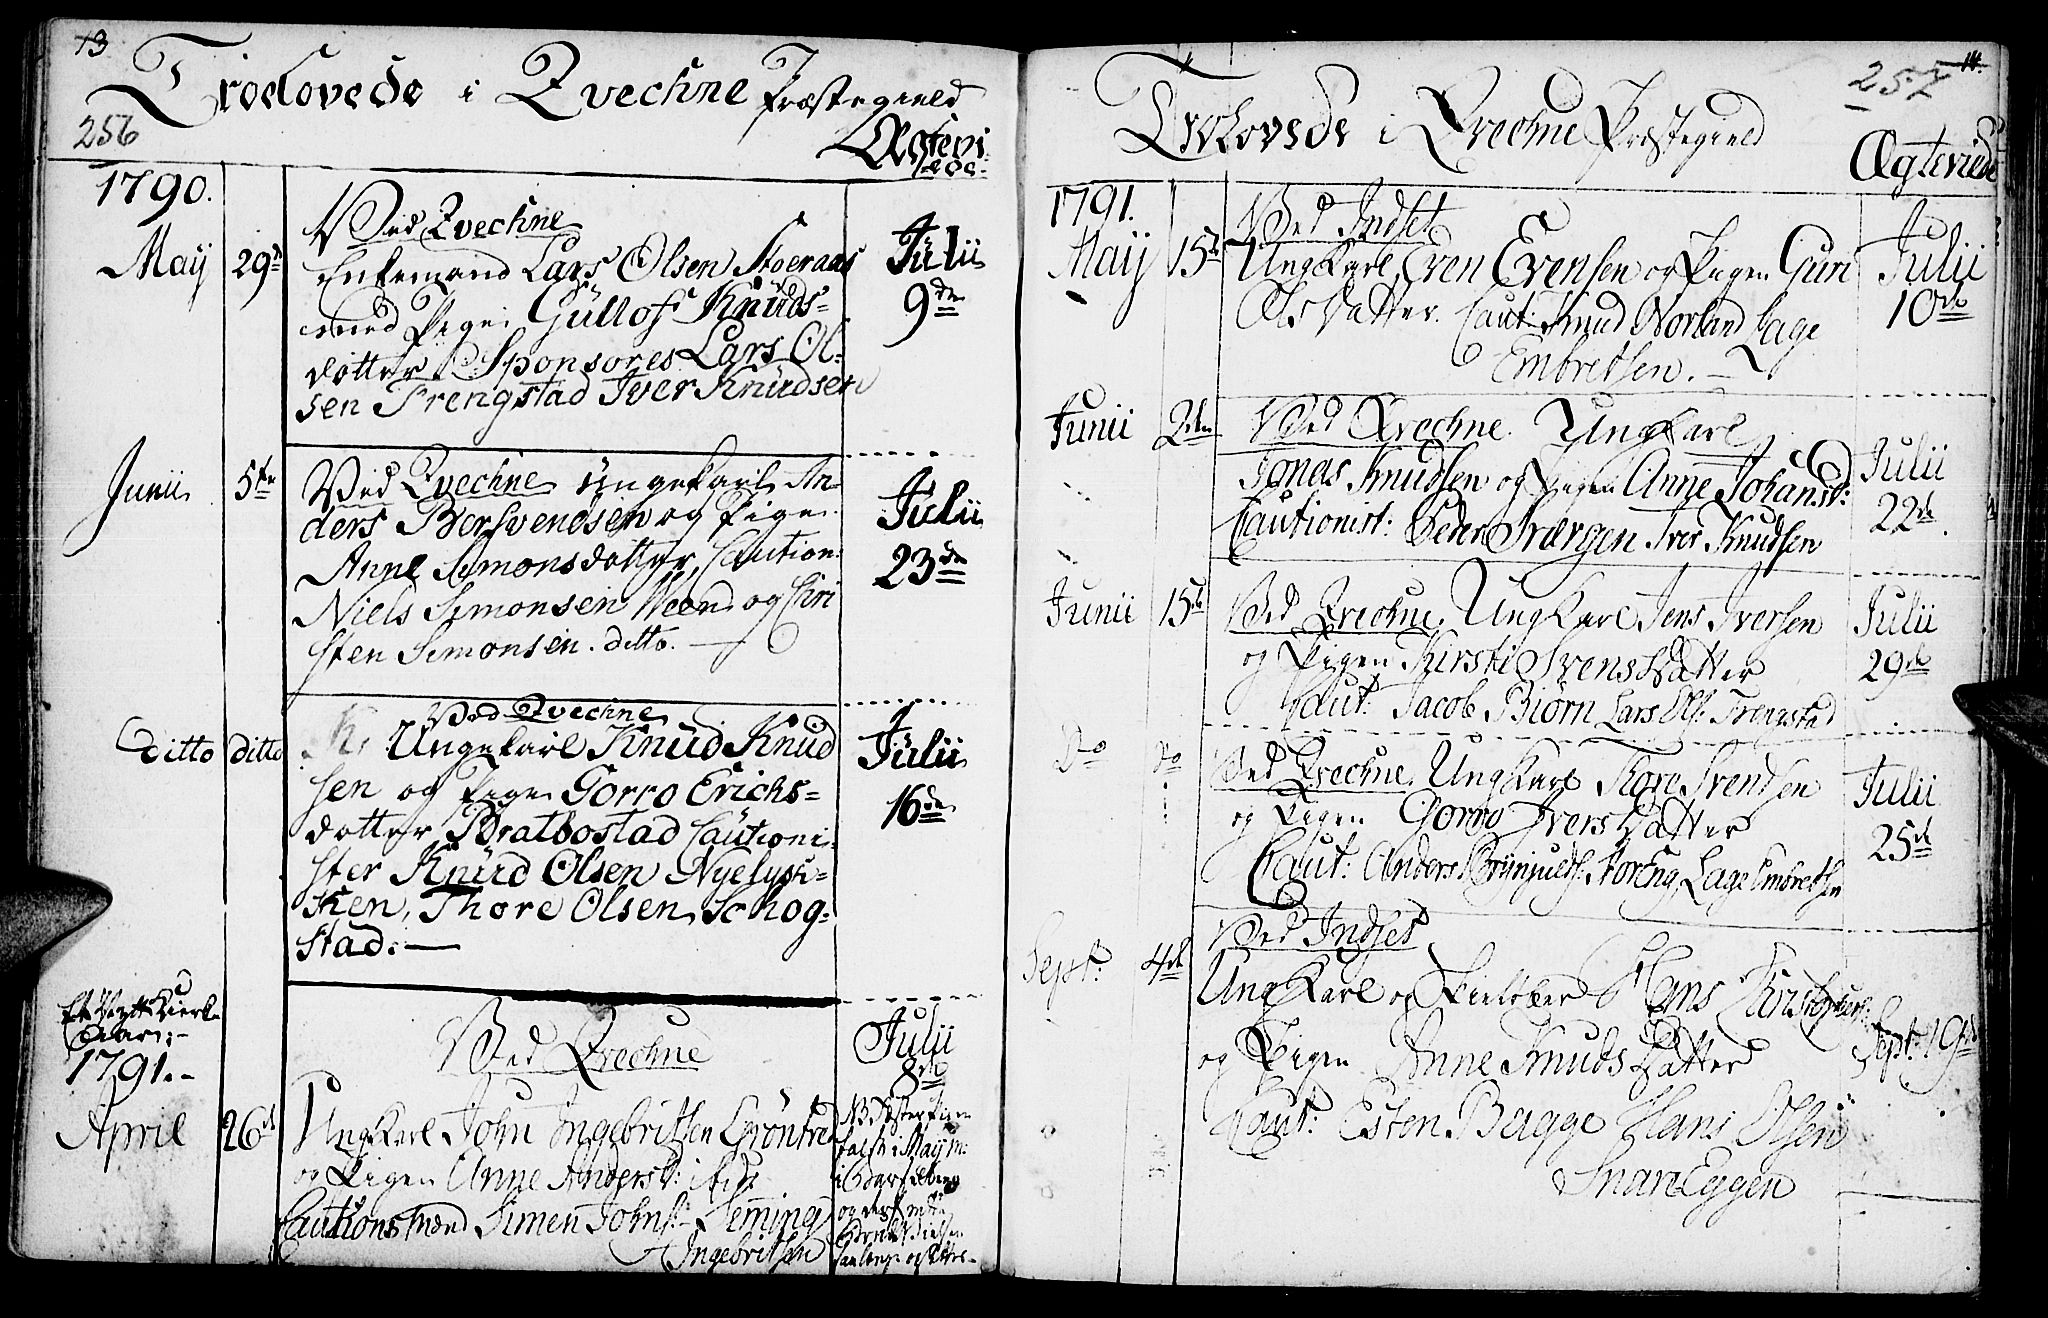 13
Trolovede i Qvechne Præstegield
256
Ægtevi-
ede.
1790.
Ved Qvechne
May 29de
Enkemand Lars Olsen Stoeraas
med Pige Güllof Knüds-
dotter Sponsores Lars Ol-
sen Frengstad Iver Knüdsen
Julii
9de
Junii 5te
Ved Qvechne Ungekarl An-
ders Bersvendsen og Pige
Anne Simonsdotter, Caution:
Niels Simonsen Weend og Chri
sten Simonsen. ditto.
Julii
23de
Ditto ditto
Ved Qvechne
Ungekarl Knud Knud
sen og Pige Gorro Erichs-
dotter Bratbostad Cautioni-
ster Knürd Olsen Nyelyk-
ken, Thore Olsen Schog-
stad.
Julii
16de
Et Nytt Kierke
Aar:
1791.
April 26de
Ved Qvechne
UngKarl John Ingebritsen Grøntre
og Pigen Anne Andersd:
Cautionsmænd Simen Johns: Fleming
Ingebritsen
Julii
8de
NB
i May M:
og
14.
257
Trolovede i Qvechne Præstegield
Ægteviede
1791.
Ved Indset
May 15de
UngKarl Even Evensen og Pigen Guri
Ols Datter. Caut: Knud Norland Lage
Embretsen.
Julii
10de
Junii 2den
Ved Qvechne. UngKarl
Jonas Knudsen og Pigen Anne Johansd:
Cautionist: Peder Sværgen Iver Knudsen
Julii
22de
Junii 15de
Ved Qvechne. UngKarl Jens Iversen
og Pigen Kirsti Svens Datter
Caut: Jacob Biørn Lars Ols: Frengstad
Julii
29de
Do do
Ved Qvechne. UngKarl Thore Svendsen
og Pigen Gorro Ivers Datter
Caut: Anders Brynjulds: Storeng, Lage Embretsen
Julii
25de
Ved Indset
Sept: 4de
UngKarl og Skieløber Hans Christophers:
og Pigen Anne Knuds Datter
Caut: Esten Bagge Hans Olsen
SnareEggen
Sept: 19de